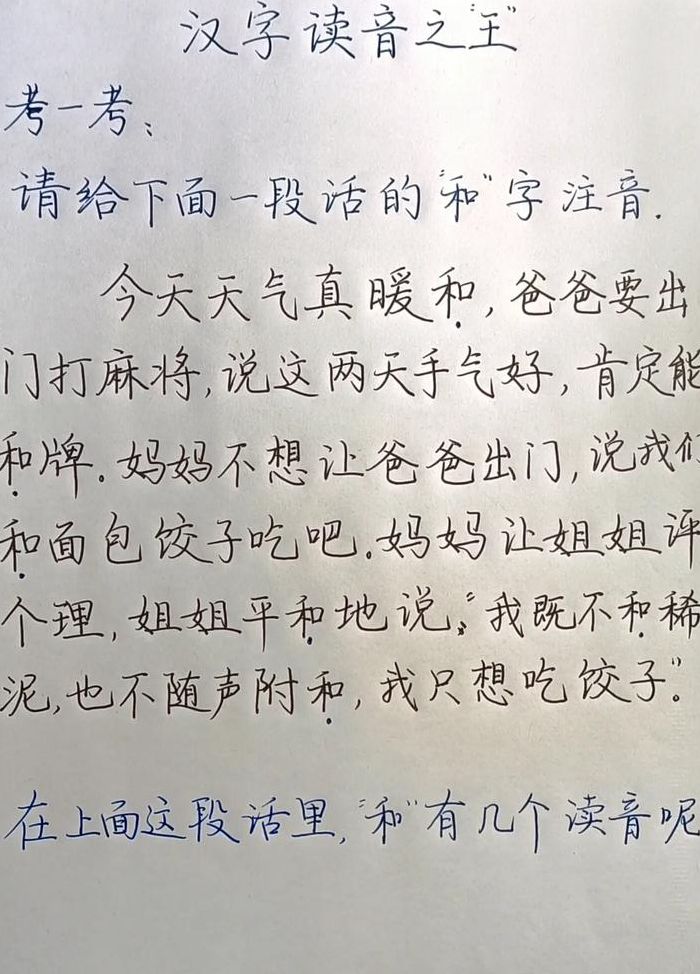 汉字读音之"王"
考一考：
请给下面一段话的"和"字注音.
今天天气真暖和,爸爸要出
门打麻将,说这两天手气好,肯定能
和牌.妈妈不想让爸爸出门,说我们
和面包饺子吃吧.妈妈让姐姐评
个理,姐姐平和地说:"我既不和稀
泥,也不随声附和,我只想吃饺子"。
在上面这段话里,"和"有几个读音呢